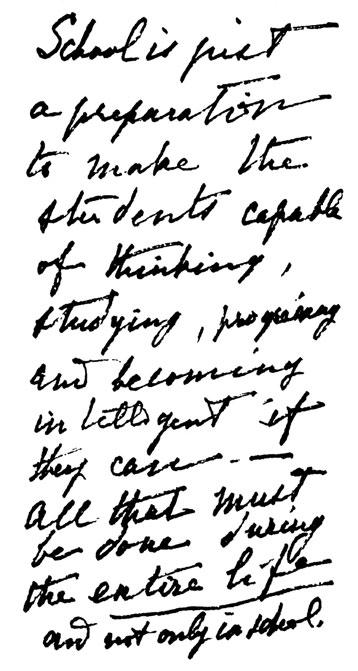 School is just
a preparation
to make the
students capable
of thinking,
studying, progressing
and becoming
intelligent if
they can —
all that must
be done during
the entire life
and not only in school.